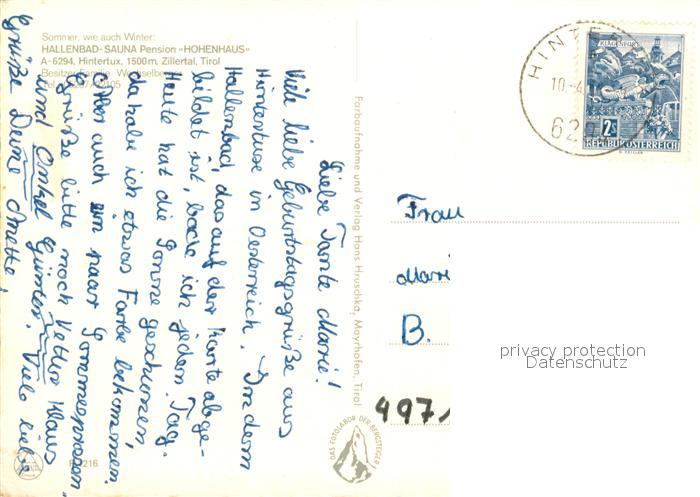 Sommer, wie auch Winter:
HALLENBAD-SAUNA Pension «HOHENHAUS»
A-6294, Hintertux, 1500 m, Zillertal, Tirol
Besitzer Familie
Liebe Tante Marie!
Viele liebe Geburtstagsgrüße aus
Hintertux in Oesterreich. In dem
Hallenbad, das auf der Karte abge-
bildet ist, bade ich jeden Tag.
Heute hat die Sonne geschienen,
da habe ich etwas Farbe bekommen.
Eben auch ein paar Sommersprossen.
Grüße bitte noch Vetter Klaus
und Onkel Günter. Viele liebe
Grüße Deine Anette.
216
Farbaufnahme und Verlag Hans Hruschka, Mayrhofen, Tirol
DAS FOTOLABOR DER BERGSTEIGER
HINTE
10.-4
629
KLAGENFURT
2S
REPUBLIK ÖSTERREICH
Frau
Mari
B.
497,
privacy protection
Datenschutz